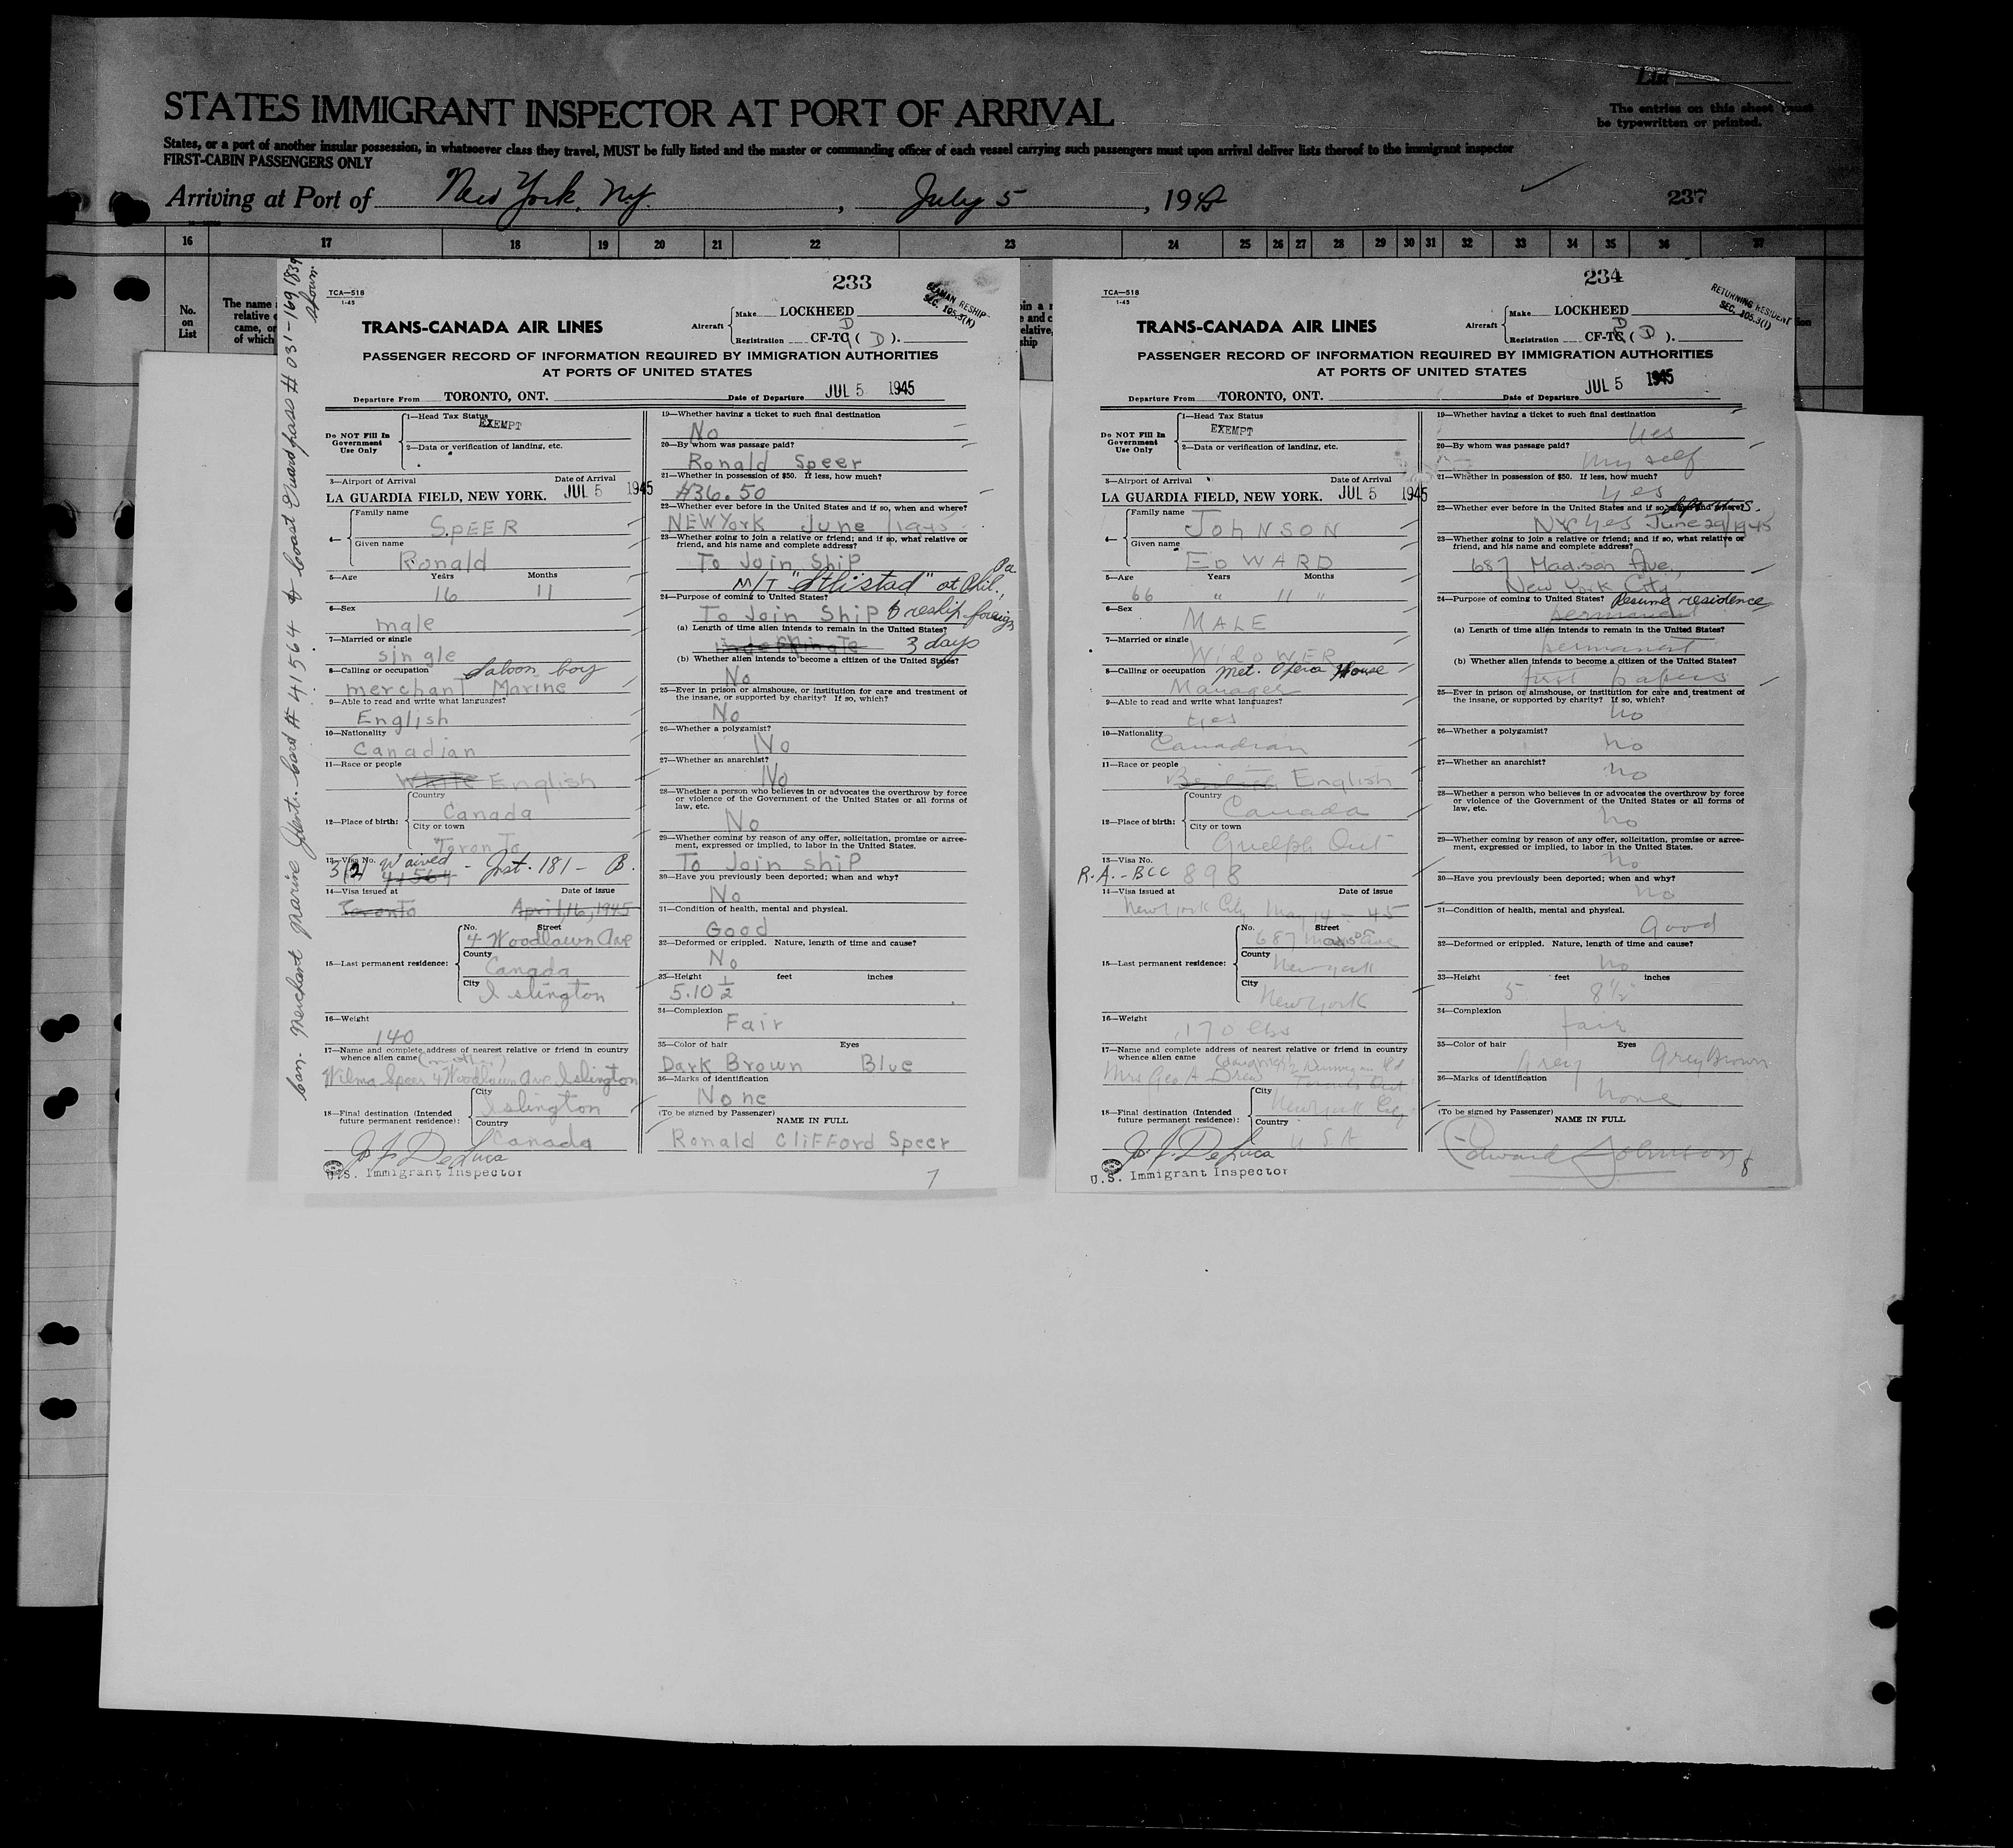 List
The entries on this sheet must
be typewritten or printed.
STATES IMMIGRANT INSPECTOR AT PORT OF ARRIVAL
States, or a port of another insular possession, in whatsoever class they travel, MUST be fully listed and the master or commanding officer of each vessel carrying such passengers must upon arrival deliver lists thereof to the immigrant inspector
FIRST-CABIN PASSENGERS ONLY
Arriving at Port of New York, N.Y. , July 5 , 1945
237
16 17 18 19 20 21 22 23 24 25 26 27 28 29 30 31 32 33 34 35 36 37
No.
on
List
The name
relative
came, or
of which
Can. Merchant Marine Identi. card # 41564 & Coast Guard pass # 031-169 1839
shown
233
TCA—518
1-45
SEAMAN RESHIP
SEC. 105.3(K)
TRANS-CANADA AIR LINES
Aircraft
Make LOCKHEED
Registration CF-TC ( D ).
D
PASSENGER RECORD OF INFORMATION REQUIRED BY IMMIGRATION AUTHORITIES
AT PORTS OF UNITED STATES
Departure From TORONTO, ONT. Date of Departure JUL 5 1945
Do NOT Fill In
Government
Use Only
1—Head Tax Status
EXEMPT
2—Data or verification of landing, etc.
3—Airport of Arrival Date of Arrival
LA GUARDIA FIELD, NEW YORK. JUL 5 1945
4—
Family name
SPEER
Given name
Ronald
5—Age Years Months
16 11
6—Sex
male
7—Married or single
single
8—Calling or occupation Saloon boy
merchant Marine
9—Able to read and write what languages?
English
10—Nationality
Canadian
11—Race or people
White English
12—Place of birth:
Country
Canada
City or town
Toronto
13—Visa No. Waived
3(2) 41564 - Inst. 181 - B.
14—Visa issued at Date of issue
Toronto April, 16, 1945
15—Last permanent residence:
No. Street
4 Woodlawn Ave
County
Canada
City
Islington
16—Weight
140
17—Name and complete address of nearest relative or friend in country
whence alien came (mother)
Wilma Speer 4 Woodlawn Ave Islington
18—Final destination (Intended
future permanent residence):
City
Islington
Country
Canada
Jo. J. DeLuca
U.S. Immigrant Inspector
19—Whether having a ticket to such final destination
No
20—By whom was passage paid?
Ronald Speer
21—Whether in possession of $50. If less, how much?
$36.50
22—Whether ever before in the United States and if so, when and where?
NEW York June /1945
23—Whether going to join a relative or friend; and if so, what relative or
friend, and his name and complete address?
To Join Ship
M/T at Phil., Pa
24—Purpose of coming to United States?
To Join Ship & reship foreign
(a) Length of time alien intends to remain in the United States?
indefinite 3 days
(b) Whether alien intends to become a citizen of the United States?
No
25—Ever in prison or almshouse, or institution for care and treatment of
the insane, or supported by charity? If so, which?
No
26—Whether a polygamist?
No
27—Whether an anarchist?
No
28—Whether a person who believes in or advocates the overthrow by force
or violence of the Government of the United States or all forms of
law, etc.
No
29—Whether coming by reason of any offer, solicitation, promise or agree-
ment, expressed or implied, to labor in the United States.
To Join ship
30—Have you previously been deported; when and why?
No
31—Condition of health, mental and physical.
Good
32—Deformed or crippled. Nature, length of time and cause?
No
33—Height feet inches
5.10 1/2
34—Complexion
Fair
35—Color of hair Eyes
Dark Brown Blue
36—Marks of identification
None
(To be signed by Passenger) NAME IN FULL
Ronald Clifford Speer
7
234
TCA—518
1-45
RETURNING RESIDENT
SEC. 105.3(I)
TRANS-CANADA AIR LINES
Aircraft
Make LOCKHEED
Registration CF-TC ( D ).
D
PASSENGER RECORD OF INFORMATION REQUIRED BY IMMIGRATION AUTHORITIES
AT PORTS OF UNITED STATES
Departure From TORONTO, ONT. Date of Departure JUL 5 1945
Do NOT Fill In
Government
Use Only
1—Head Tax Status
EXEMPT
2—Data or verification of landing, etc.
3—Airport of Arrival Date of Arrival
LA GUARDIA FIELD, NEW YORK. JUL 5 1945
4—
Family name
JOHNSON
Given name
EDWARD
5—Age Years Months
66 " 11 "
6—Sex
MALE
7—Married or single
WIDOWER
8—Calling or occupation Met. Opera House
Manager
9—Able to read and write what languages?
Yes
10—Nationality
Canadian
11—Race or people
British English
12—Place of birth:
Country
Canada
City or town
Guelph Ont
13—Visa No.
R.A.-BCC 898
14—Visa issued at Date of issue
New York City May 14 - 45
15—Last permanent residence:
No. Street
687 Madison ave
County
New York
City
New York
16—Weight
170 lbs
17—Name and complete address of nearest relative or friend in country
whence alien came (daughter)
Mrs Geo A Drew Rd
Toronto Ont
18—Final destination (Intended
future permanent residence):
City
New York City
Country
U S A
Jo. J. DeLuca
U.S. Immigrant Inspector
19—Whether having a ticket to such final destination
Yes
20—By whom was passage paid?
My self
21—Whether in possession of $50. If less, how much?
Yes
22—Whether ever before in the United States and if so, when and where?
NYC Yes June 29/1945
23—Whether going to join a relative or friend; and if so, what relative or
friend, and his name and complete address?
687 Madison Ave.,
New York City
24—Purpose of coming to United States? Resume residence
permanent
(a) Length of time alien intends to remain in the United States?
permanent
(b) Whether alien intends to become a citizen of the United States?
first papers
25—Ever in prison or almshouse, or institution for care and treatment of
the insane, or supported by charity? If so, which?
No
26—Whether a polygamist?
No
27—Whether an anarchist?
no
28—Whether a person who believes in or advocates the overthrow by force
or violence of the Government of the United States or all forms of
law, etc.
no
29—Whether coming by reason of any offer, solicitation, promise or agree-
ment, expressed or implied, to labor in the United States.
no
30—Have you previously been deported; when and why?
no
31—Condition of health, mental and physical.
Good
32—Deformed or crippled. Nature, length of time and cause?
no
33—Height feet inches
5 8 1/2
34—Complexion
fair
35—Color of hair Eyes
Grey Grey Brown
36—Marks of identification
none
(To be signed by Passenger) NAME IN FULL
Edward Johnson
8